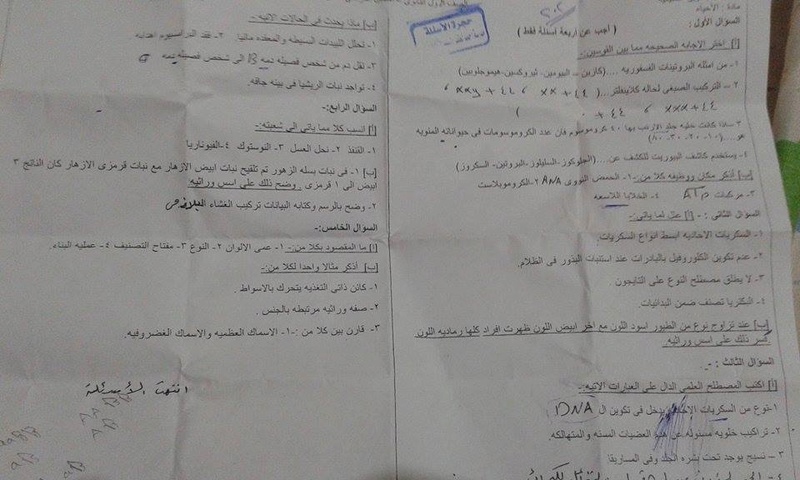 مادة : الأحياء
السؤال الأول:
( اجب عن اربعة اسئلة فقط )
حجرة الأسئلة
[أ] اختر الاجابه الصحيحه مما بين القوسين:-
١- من امثله البروتينات الفسفوريه ....(كازين – البيومين- ثيروكسين- هيموجلوبين)
٢ – التركيب الصبغى لحاله كلاينفلتر....( ٤٤ + xx ، ٤٤ + xxy ،
٤٤ + xxx ، ٤٤ + )
٣ –اذا كانت خليه جلد الارنب بها ٤٠ كروموسوم فان عدد الكروموسومات فى حيواناته المنويه
هو....(١٠-٢٠-٣٠-٨٠)
٤- ويستخدم كاشف البيوريت للكشف عن....(الجلوكوز-السليلوز-البروتين- السكروز)
[ب] أذكر مكان ووظيفه كلا من:- ١- الحمض النووى RNA ٢-الكروموبلاست
٣- مركبات ATP ٤- الخلايا اللاسعه
السؤال الثانى :- [أ] علل لما ياتى:-
١- السكريات الاحاديه ابسط انواع السكريات.
٢- عدم تكوين الكلوروفيل بالبادرات عند استنبات البذور فى الظلام.
٣- لا يطلق مصطلح النوع على التايجون.
٤- البكتريا تصنف ضمن البدائيات.
[ب] عند تزاوج نوع من الطيور اسود اللون مع اخر ابيض اللون ظهرت افراد كلها رماديه اللون
فسر ذلك على اسس وراثيه.
السؤال الثالث :-
[أ] اكتب المصطلح العلمى الدال على العبارات الاتيه:-
١-نوع من السكريات الاحاديه يدخل فى تكوين ال DNA
٢- تراكيب خلويه مسئوله عن هضم العضيات المسنه والمتهالكه.
٣ – نسيج يوجد تحت بشره الجلد وفى المساريقا
[ب] ماذا يحدث فى الحالات الاتيه:-
١- تحلل الليبيدات البسيطه والمعقده مائيا ٢- فقد البراميسيوم اهدابه
٣- نقل دم من شخص فصيلته دمه B الى شخص فصيلته دمه
٤- تواجد نبات الريشيا فى بيئه جافه.
السؤال الرابع:-
[أ] انسب كلا مما ياتى الى شعبته:-
١- القنفذ ٢- نحل العسل ٣- النوستوك ٤-الفيوناريا
[ب] ١- فى نبات بسله الزهور تم تلقيح نبات ابيض الازهار مع نبات قرمزى الازهار كان الناتج ٣
ابيض الى ١ قرمزى . وضح ذلك على اسس وراثيه
٢ – وضح بالرسم وكتابه البيانات تركيب الغشاء البلازمى
السؤال الخامس:-
[أ] ما المقصود بكلا من:- ١- عمى الالوان ٢- النوع ٣- مفتاح التصنيف ٤- عمليه البناء.
[ب] أذكر مثالا واحدا لكلا من:-
١- كائن ذاتى التغذيه يتحرك بالاسواط.
٢- صفه وراثيه مرتبطه بالجنس.
٣- قارن بين كلا من :-١- الاسماك العظميه والاسماك الغضروفيه.
انتهت الأسئلة